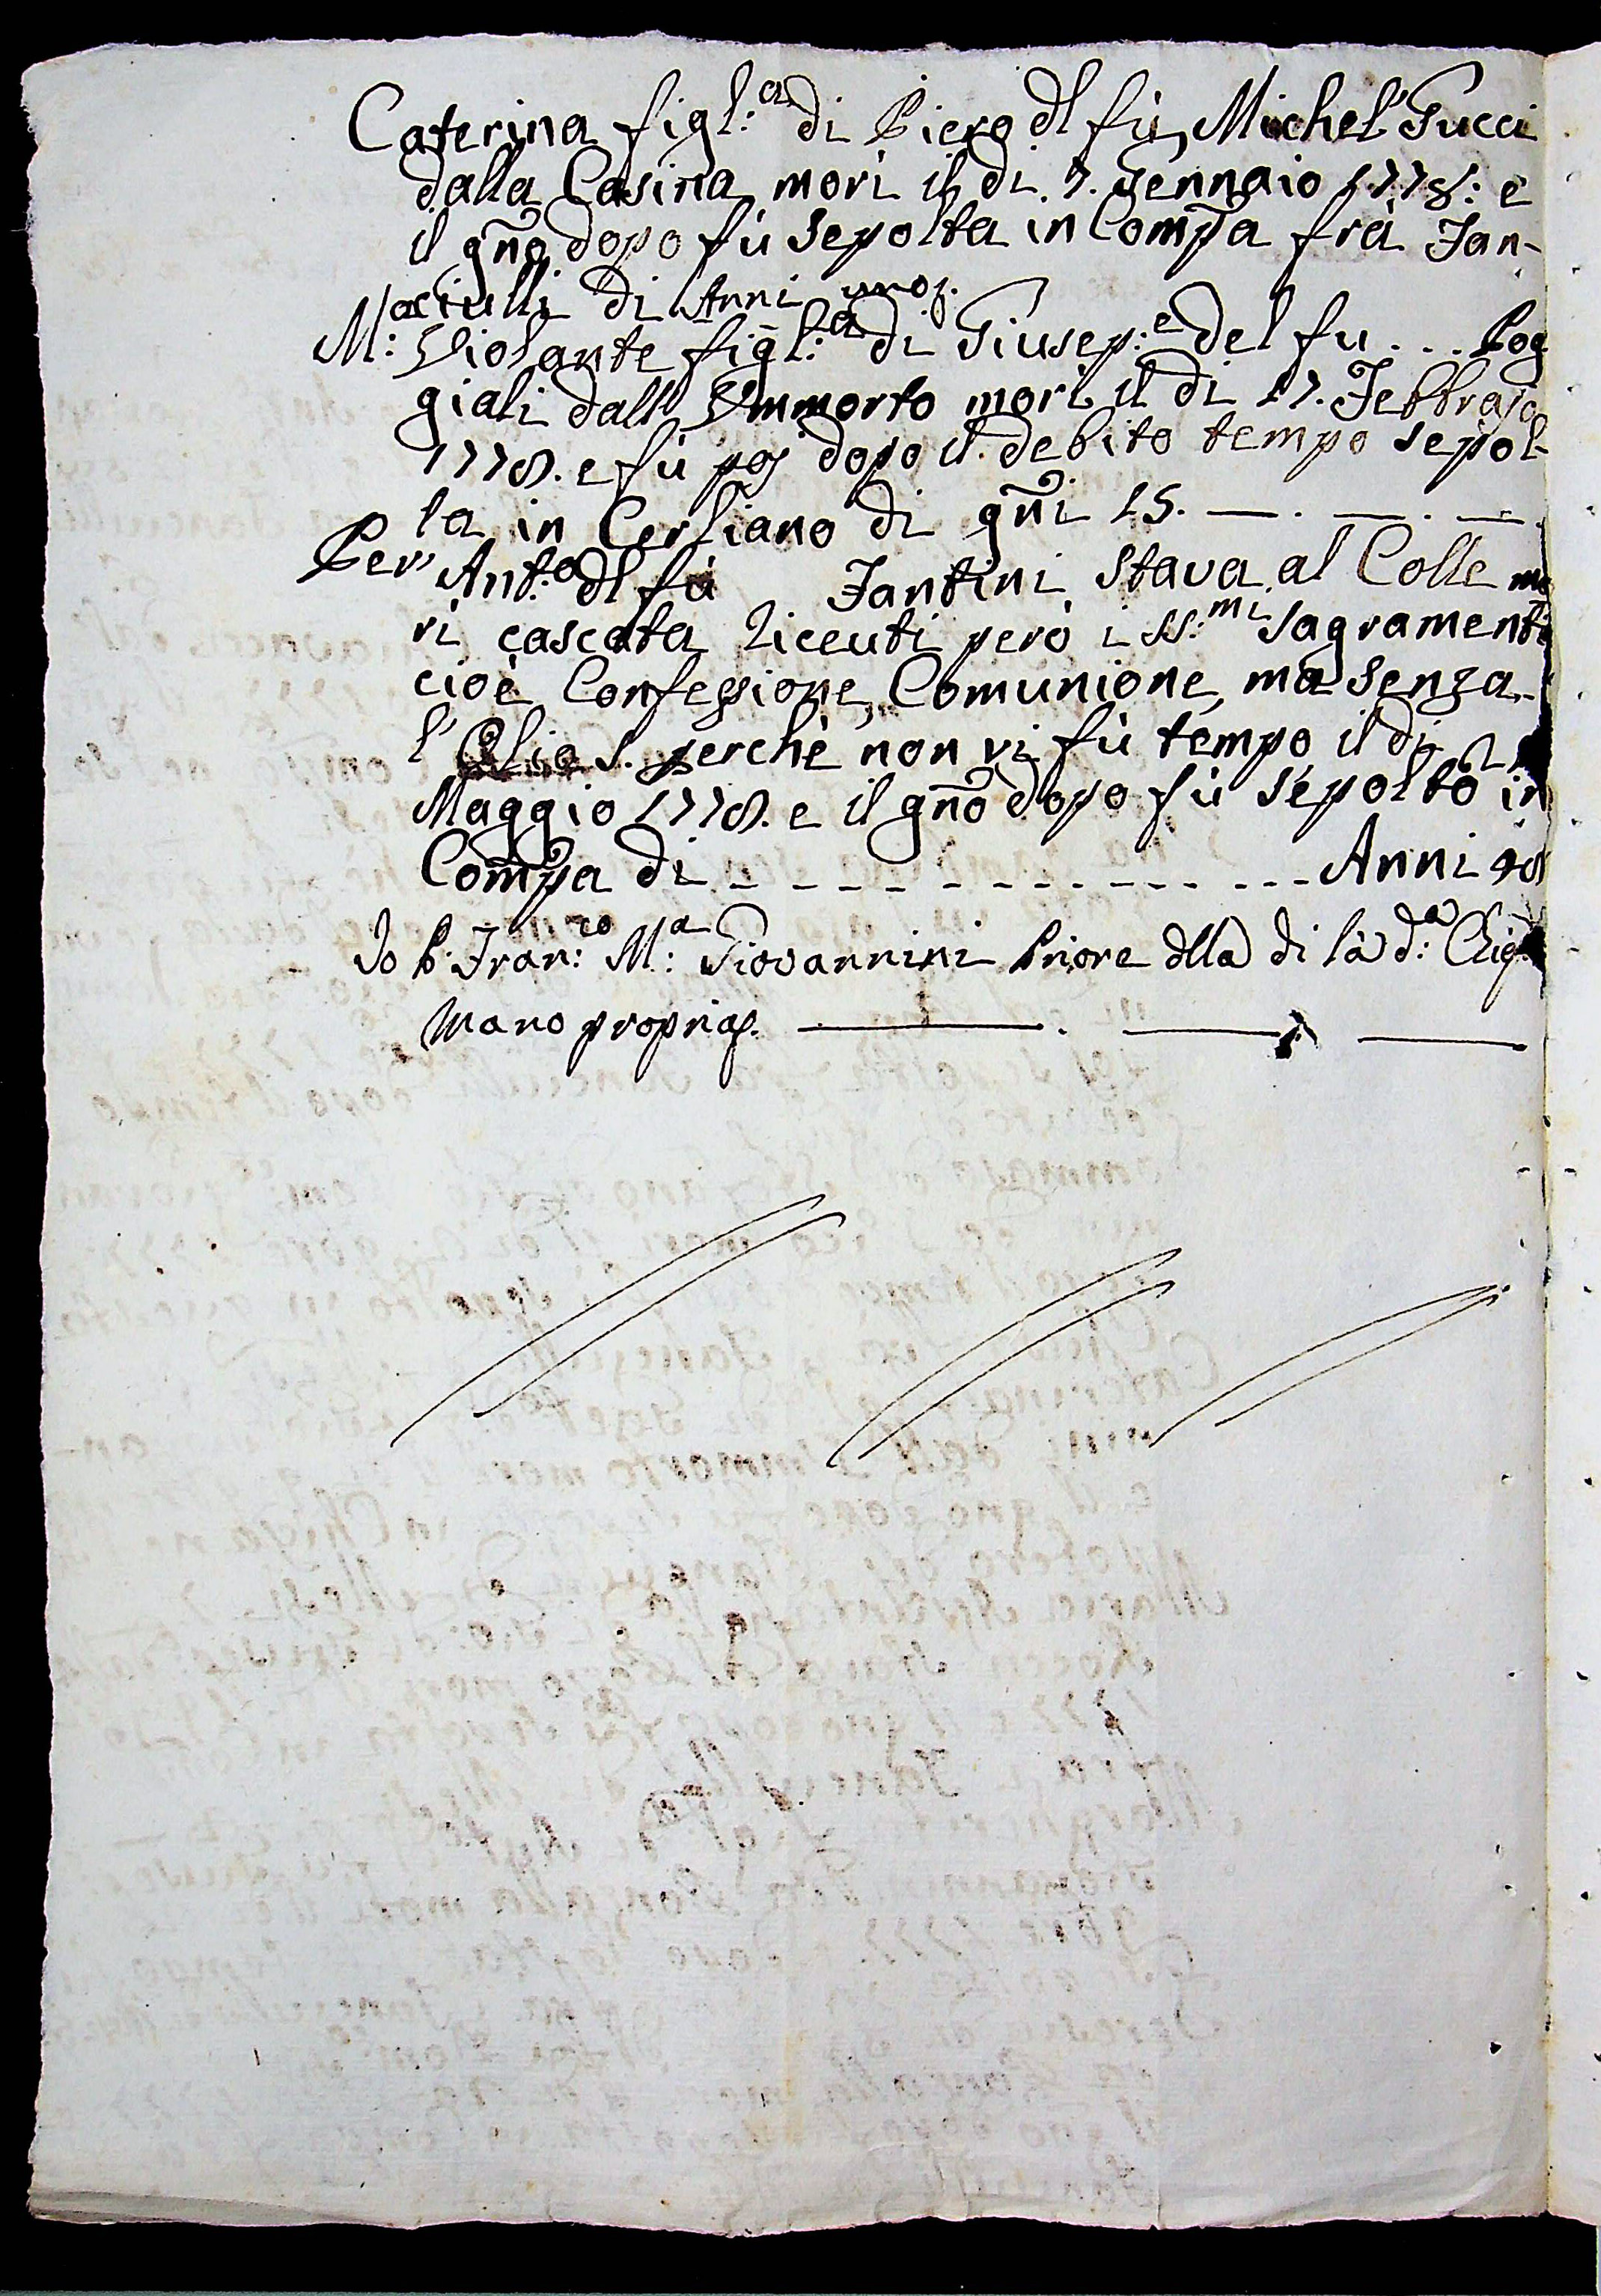 Caterina figl:a di Piero dl fù Michel' Tucci
dalla Casina morì il di. 7. Gennaio 1778: e
il gño dopo fù sepolta in Comp̃a frà Fan-
ciulli di Anni uno
Ma: Violante figl:a di Giusep:e del fu ... Pog
giali dall' Immorto morì il di 17. Febbrajo
1778. e fù poj dopo il debito tempo sepol-
ta in Cerliano di gñi 15. — . — . — .
Pier Ant:o dl fù Fantini stava al Colle mo
rì cascata riceuti però i SS:mi Sagramenti
cioè Confessione, Comunione, ma senza
l' Olio S. perchè non vi fù tempo il di
Maggio 1778. e il gño dopo fù sepolto in
Comp̃a di - - - - - - - - - - - Anni 48
Io P. Fran:co M:a Giovannini Priore dlla di là d:a
mano propria. — . — —